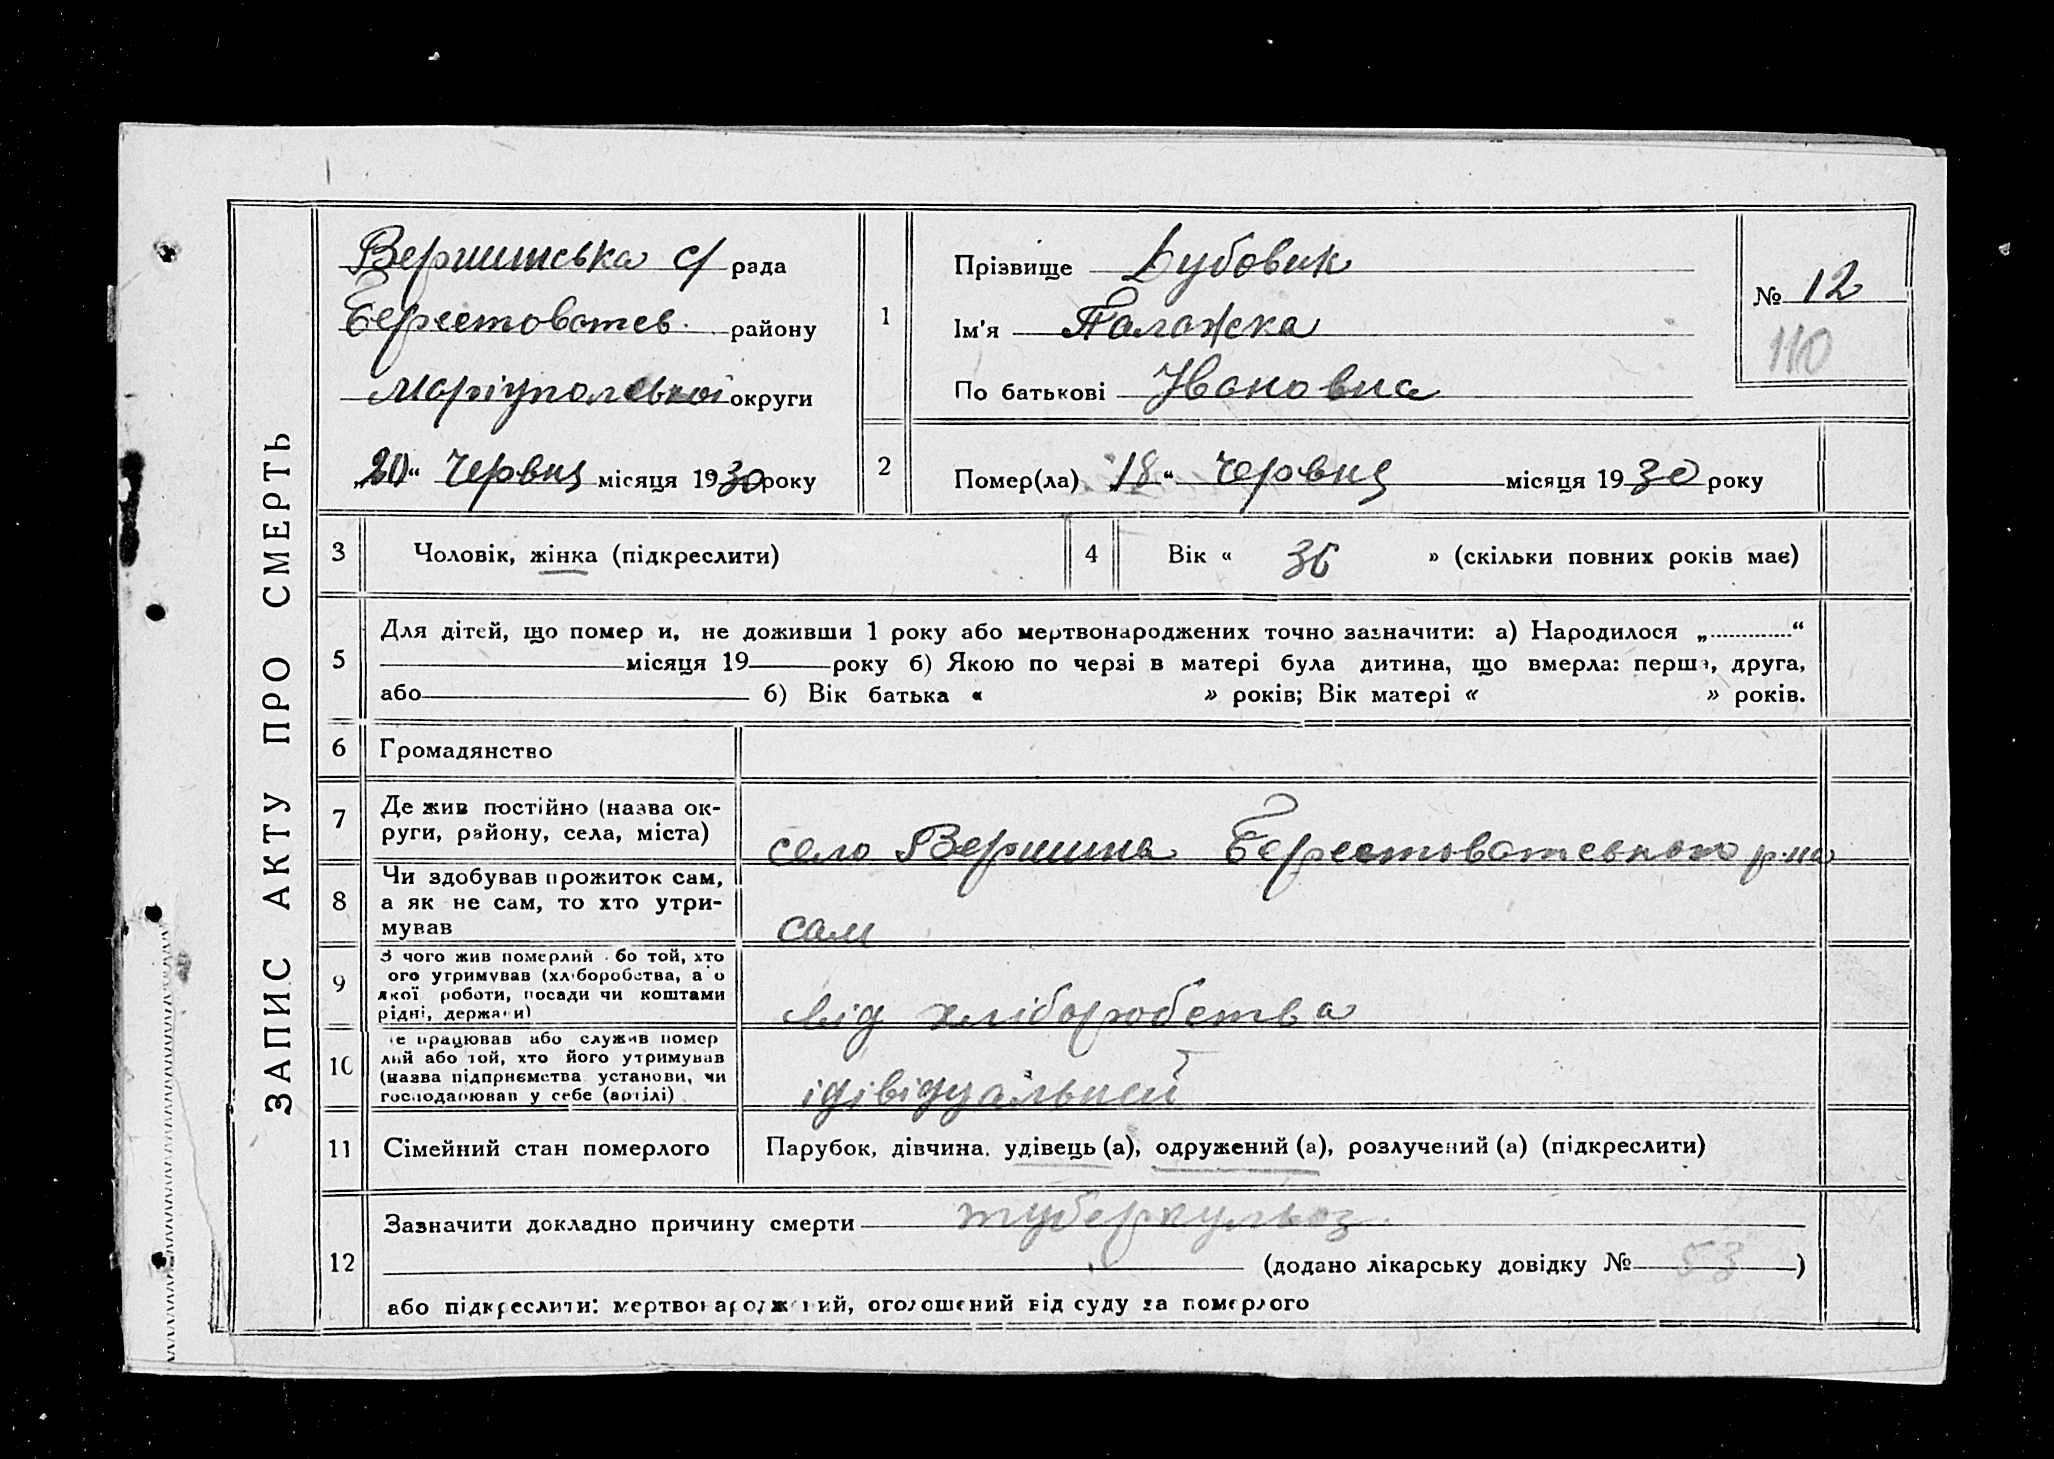 ЗАПИС АКТУ ПРО СМЕРТЬ
Вершинська с/ рада
Берестоватев. району
Маріупольської округи
„20“ червня місяця 1930 року
1
Прізвище Дубовик
Ім'я Палажка
По батькові Ивановна
№ 12
110
2
Помер(ла) 18“ червня місяця 1930 року
3 Чоловік, жінка (підкреслити)
4 Вік « 36 » (скільки повних років має)
5
Для дітей, що помер и, не доживши 1 року або мертвонароджених точно зазначити: а) Народилося „.............“
місяця 19 року б) Якою по черзі в матері була дитина, що вмерла: перша, друга,
або б) Вік батька « » років; Вік матері « » років.
6 Громадянство
7
Де жив постійно (назва ок-
руги, району, села, міста)
село Вершина Берестоватевского р-на
8
Чи здобував прожиток сам,
а як не сам, то хто утри-
мував
сам
9
З чого жив померлий бо той, хто
ого утримував (хліборобства, а о
якої роботи, посади чи коштами
рідні, держави)
від хліборобства
10
е працював або служив помер
лий або той, хто його утримував
(назва підприємства установи, чи
господарював у себе (артілі)
ідівідуальней
11 Сімейний стан померлого
Парубок, дівчина, удівець (а), одружений (а), розлучений (а) (підкреслити)
12
Зазначити докладно причину смерти туберкульоз.
(додано лікарську довідку № 53 )
або підкреслити: мертвонароджений, оголошений від суду за померлого